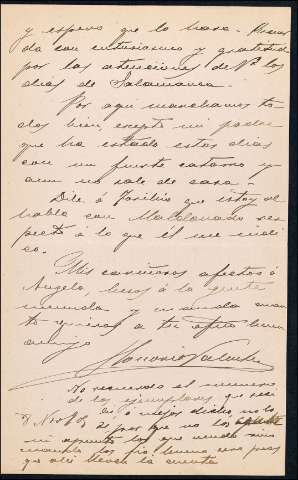 y espero que lo hara. Recuer
da con entusiasmo y gratitud
por las atenciones de Vs. los
dias de Salamanca.
Por aqui marchamos to
dos bien, excepto mi padre
que ha estado estos dias
con un fuerte catarro y
aun no sale de casa.
Dile á Joselito que estoy al
habla con Maldonado res
pecto á lo que él me indi
có.
Mis cariñosos afectos á
Angela, besos á la gente
menuda y manda cuan
to quieras a tu afmo buen
amigo
No recuerdo el numero
de los ejemplares que
ó mejor dicho, no lo
sé por que no los
ni apunto los que vendo sino
cuando los fio, bueno será pues
que ahi lleven la cuenta